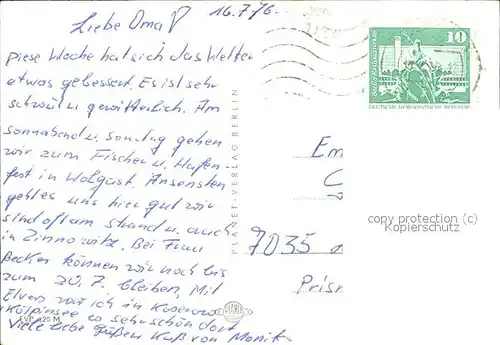 16.7.76.
Liebe Oma!
Diese Woche hat sich das Wetter
etwas gebessert. Es ist sehr
schwül u. gewitterlich. Am
Sonnabend u. Sonntag gehen
wir zum Fischer u. Hafen-
fest in Wolgast. Ansonsten
geht es uns hier gut wir
sind oft am Strand u. auch
in Zinnowitz. Bei Frau
Becker können wir noch bis
zum 20. 7. bleiben. Mit
Elvers war ich in Koserow
Kölpinsee es sehr schön dort
Viele liebe Grüßen Kuß von Monika
EVP 0,20 M
PLANET-VERLAG BERLIN
PLANET
10
DEUTSCHE DEMOKRATISCHE REPUBLIK
Em
C
7035
Prism
copyright protection (c)
Kopierschutz